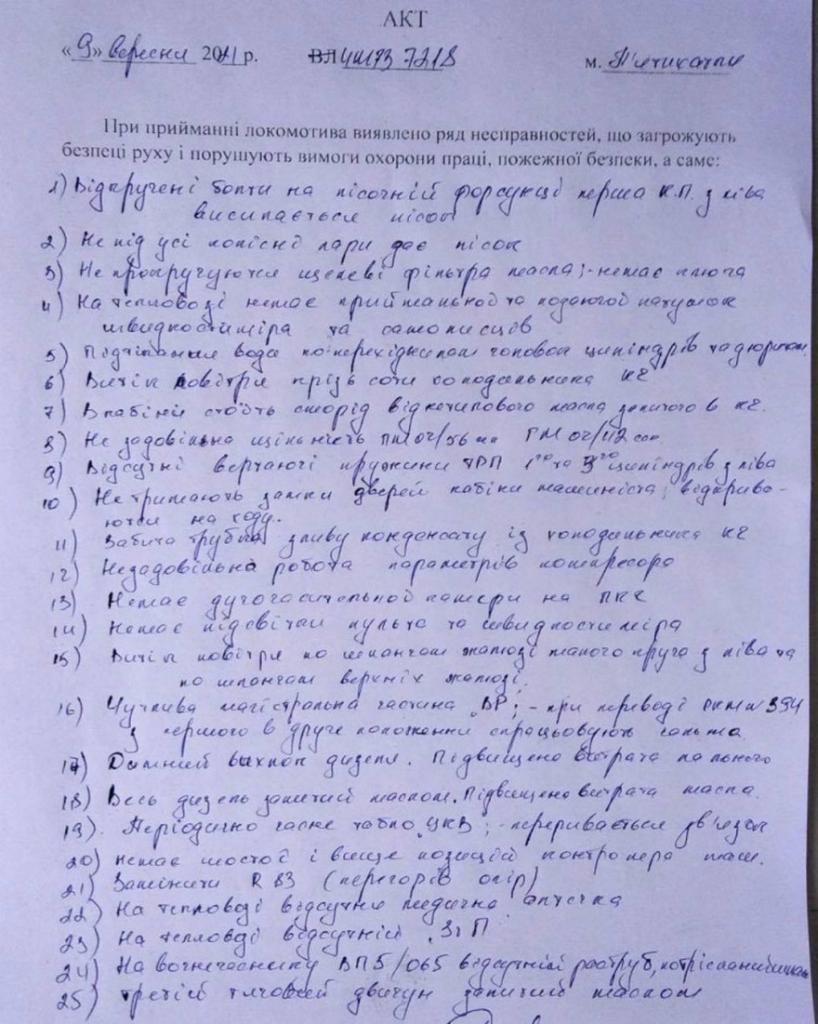 АКТ
«9» вересня 2021 р. ВЛ ЧМЭ3 7218 м. П'ятихатки
При прийманні локомотива виявлено ряд несправностей, що загрожують
безпеці руху і порушують вимоги охорони праці, пожежної безпеки, а саме:
1) Відкручені болти на пісочній форсунці перша К.П. з ліва
висипається пісок
2) Не під усі колісні пари дає пісок
3) Не прокручуються щелеві фільтра масла; - немає ключа
4) На тепловозі немає приймальної та подаючої катушок
швидкостиміра та самописців
5) Підтікання води по перехідникам головок циліндрів та дюритам
6) Витік повітря крізь соти холодильника КЕ
7) В кабіні стоїть сморід від картерного масла залитого в КЕ.
8) Не задовільна щільність ПМ 04/56 сек ГМ 04/112 сек.
9) Відсутні верчаючі пружини ТРП 1го та 3го циліндрів з ліва
10) Не тримають замки дверей кабіни машиніста; відкрива-
ються на ходу.
11) Забита трубка зливу конденсату із холодильника КЕ
12) Незадовільна робота параметрів компресора
13) Немає дугогасительной камери на ПКЕ
14) Немає підсвітки пульта та швидкостиміра
15) Витік повітря по шлангам жалюзі малого круга з ліва та
по шлангам верхніх жалюзі.
16) Чутлива магістральна частина ВР; - при переводі РКМ № 394
з першого в друге положення спрацьовують гальма
17) Димний выхлоп дизеля. Підвищена витрата пального
18) Весь дизель залитий маслом. Підвищена витрата масла.
19) Періодично гасне табло УКВ; - переривається зв'язок
20) Немає шостої і вище позицій контролера маш.
21) Замінити R 83 (перегорів опір)
22) На тепловозі відсутня медична аптечка
23) На тепловозі відсутній ЗІП
24) На вогнегаснику ВП5/065 відсутній раструб, потрісканий шланг
25) Третій тяговой двигун залитий маслом